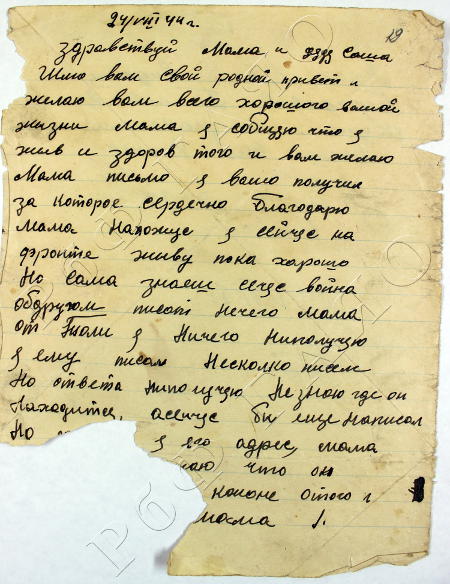 24/VIII 44 г.
19
Здравствуй Мама и дядя Саша
Шлю вам свой родной привет и
желаю вам всего хорошого вашой
жизни Мама я собщяю что я
жив и здоров того и вам желаю
Мама письмо я вашо получил
за которое сердечно благодарю
Мама Нахожусе я сейчас на
фронте живу пока хорошо
Но сама знаеш сеце война
обдругом писат Нечего Мама
от Толи я Ничего Ниполучяю
я ему писал Несколко писем
Но ответа Ниполучяю Незнаю где он
Находится, асейчас бы еще Написал
Но я его адрес, мама
что он
отого и
мама я.
РбФ ГААО